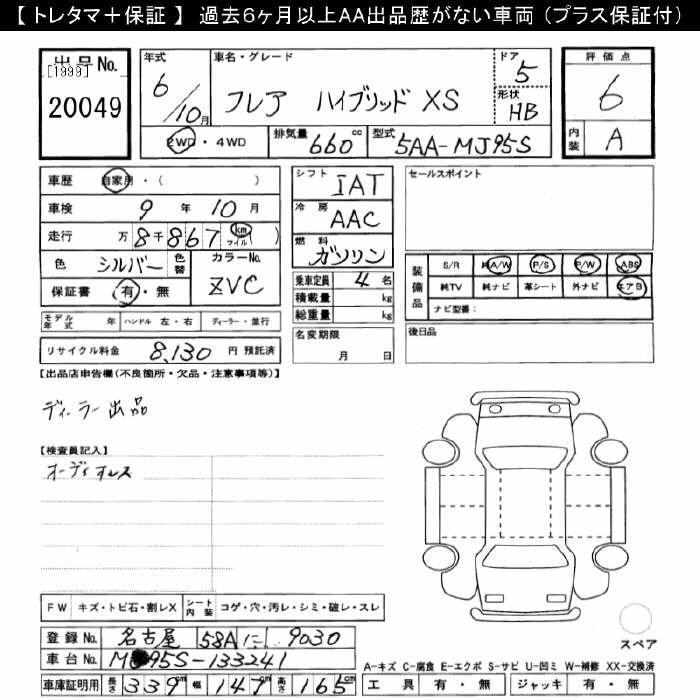 【 トレタマ＋保証 】 過去6ヶ月以上AA出品歴がない車両 (プラス保証付)
出品No.
[1999]
20049
年式 車名・グレード ドア 評価点
6/10月 フレア ハイブリッド XS 5 6
形状 HB
2WD・4WD 排気量 660 cc 型式 5AA-MJ95S 内装 A
車歴 自家用・( )
車検 9 年 10 月
走行 万 8 千 8 6 7 km マイル ( )
色 シルバー 色替 カラーNo. ZVC
保証書 有・無
シフト IAT
冷房 AAC
燃料 ガソリン
乗車定員 4 名
積載量 kg
総重量 kg
セールスポイント
装備品 S/R 純A/W P/S P/W ABS
純TV 純ナビ 革シート 外ナビ エアB
ナビ型番:
モデル年式 年 ハンドル 左・右 ディーラー・並行
名変期限 月 日
後日品
リサイクル料金 8,130 円 預託済
【出品店申告欄(不良箇所・欠品・注意事項等)】
ディーラー出品
【検査員記入】
オーディオレス
FW キズ・トビ石・割レX シート内装 コゲ・穴・汚レ・シミ・破レ・スレ
スペア
登録No. 名古屋 58A に 9030
車台No. MJ95S-133241
A-キズ C-腐食 E-エクボ S-サビ U-凹ミ W-補修 XX-交換済
車庫証明用 長さ 339cm 幅 147cm 高さ 165cm 工具 有・無 ジャッキ 有・無